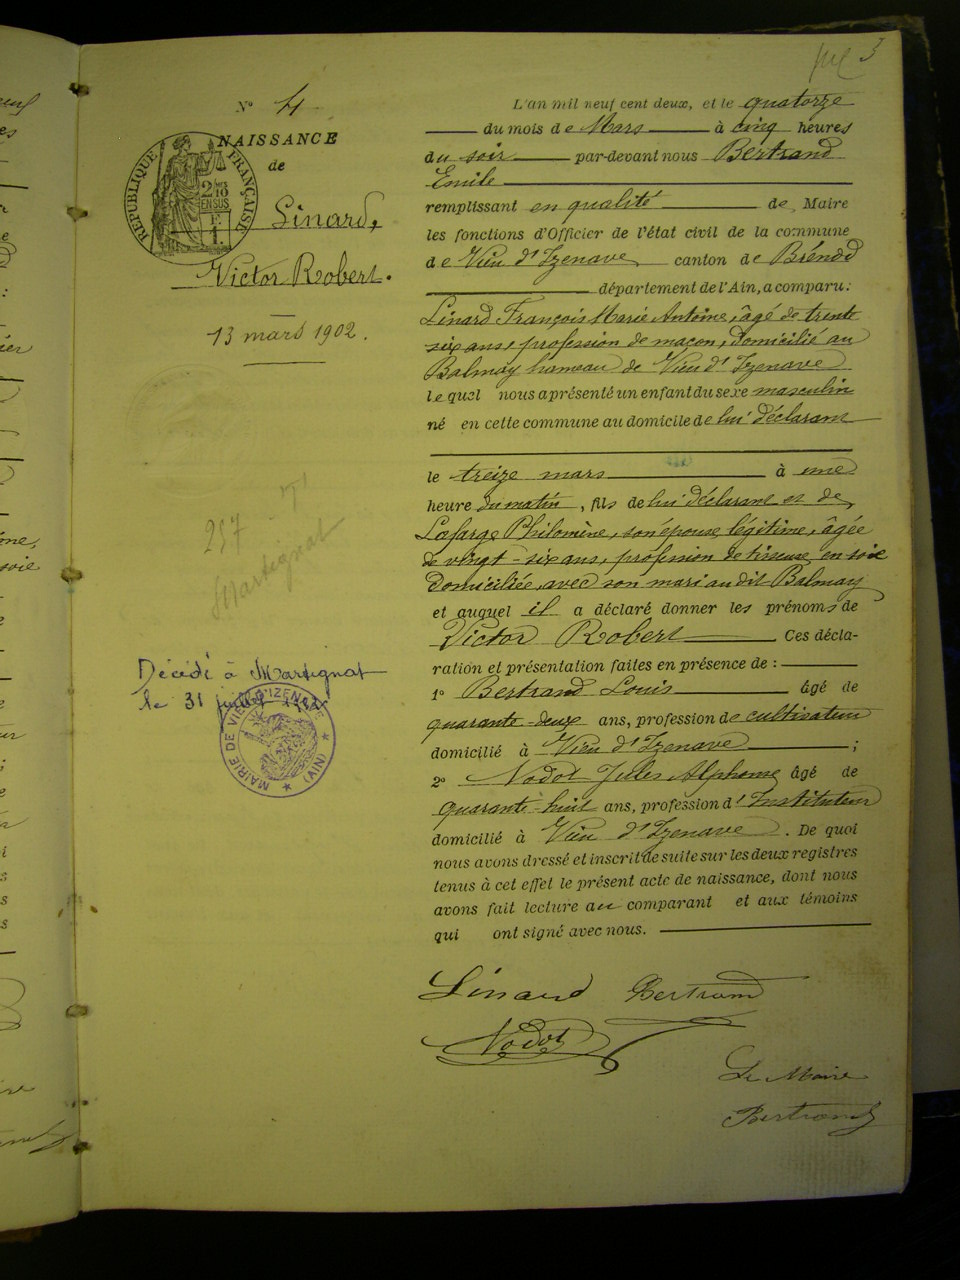 3
N° 4
NAISSANCE
de
RÉPUBLIQUE FRANÇAISE
2/10
EN SUS
F.
1.
Linard,
Victor Robert.
13 mars 1902.
257
Martignat
Décédé à Martignat
le 31 juillet
MAIRIE DE VIEU D'IZENAVE
(AIN)
L'an mil neuf cent deux, et le quatorze
du mois de Mars à cinq heures
du soir par-devant nous Bertrand
Emile
remplissant en qualité de Maire
les fonctions d'Officier de l'état civil de la commune
de Vieu d'Izenave canton de Brénod
département de l'Ain, a comparu :
Linard François Marie Antoine, âgé de trente
six ans, profession de maçon, domicilié au
Balmay hameau de Vieu d'Izenave
lequel nous a présenté un enfant du sexe masculin
né en cette commune au domicile de lui déclarant
le treize mars à une
heure du matin, fils de lui déclarant et de
Lafarge Philomène, son épouse légitime, âgée
de vingt-six ans, profession de tisseuse en soie
domiciliée avec son mari au dit Balmay
et auquel il a déclaré donner les prénoms de
Victor Robert Ces décla-
ration et présentation faites en présence de :
1° Bertrand Louis âgé de
quarante-deux ans, profession de cultivateur
domicilié à Vieu d'Izenave ;
2° Nodot Jules Alphonse âgé de
quarante-huit ans, profession d'Instituteur
domicilié à Vieu d'Izenave. De quoi
nous avons dressé et inscrit de suite sur les deux registres
tenus à cet effet le présent acte de naissance, dont nous
avons fait lecture au comparant et aux témoins
qui ont signé avec nous.
Linard Bertrand
Nodot
Le Maire
Bertrand